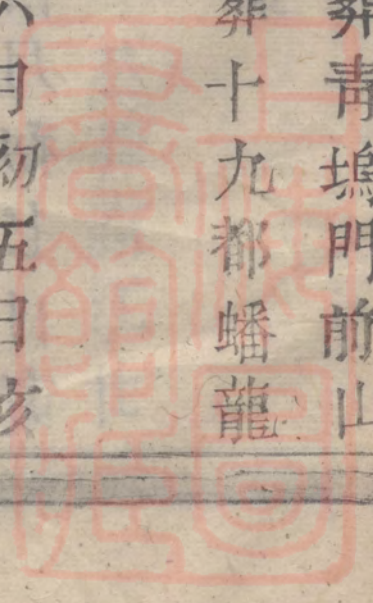 葬青塢門前山
葬十九都蟠龍
月初五日亥
上海圖
書館藏